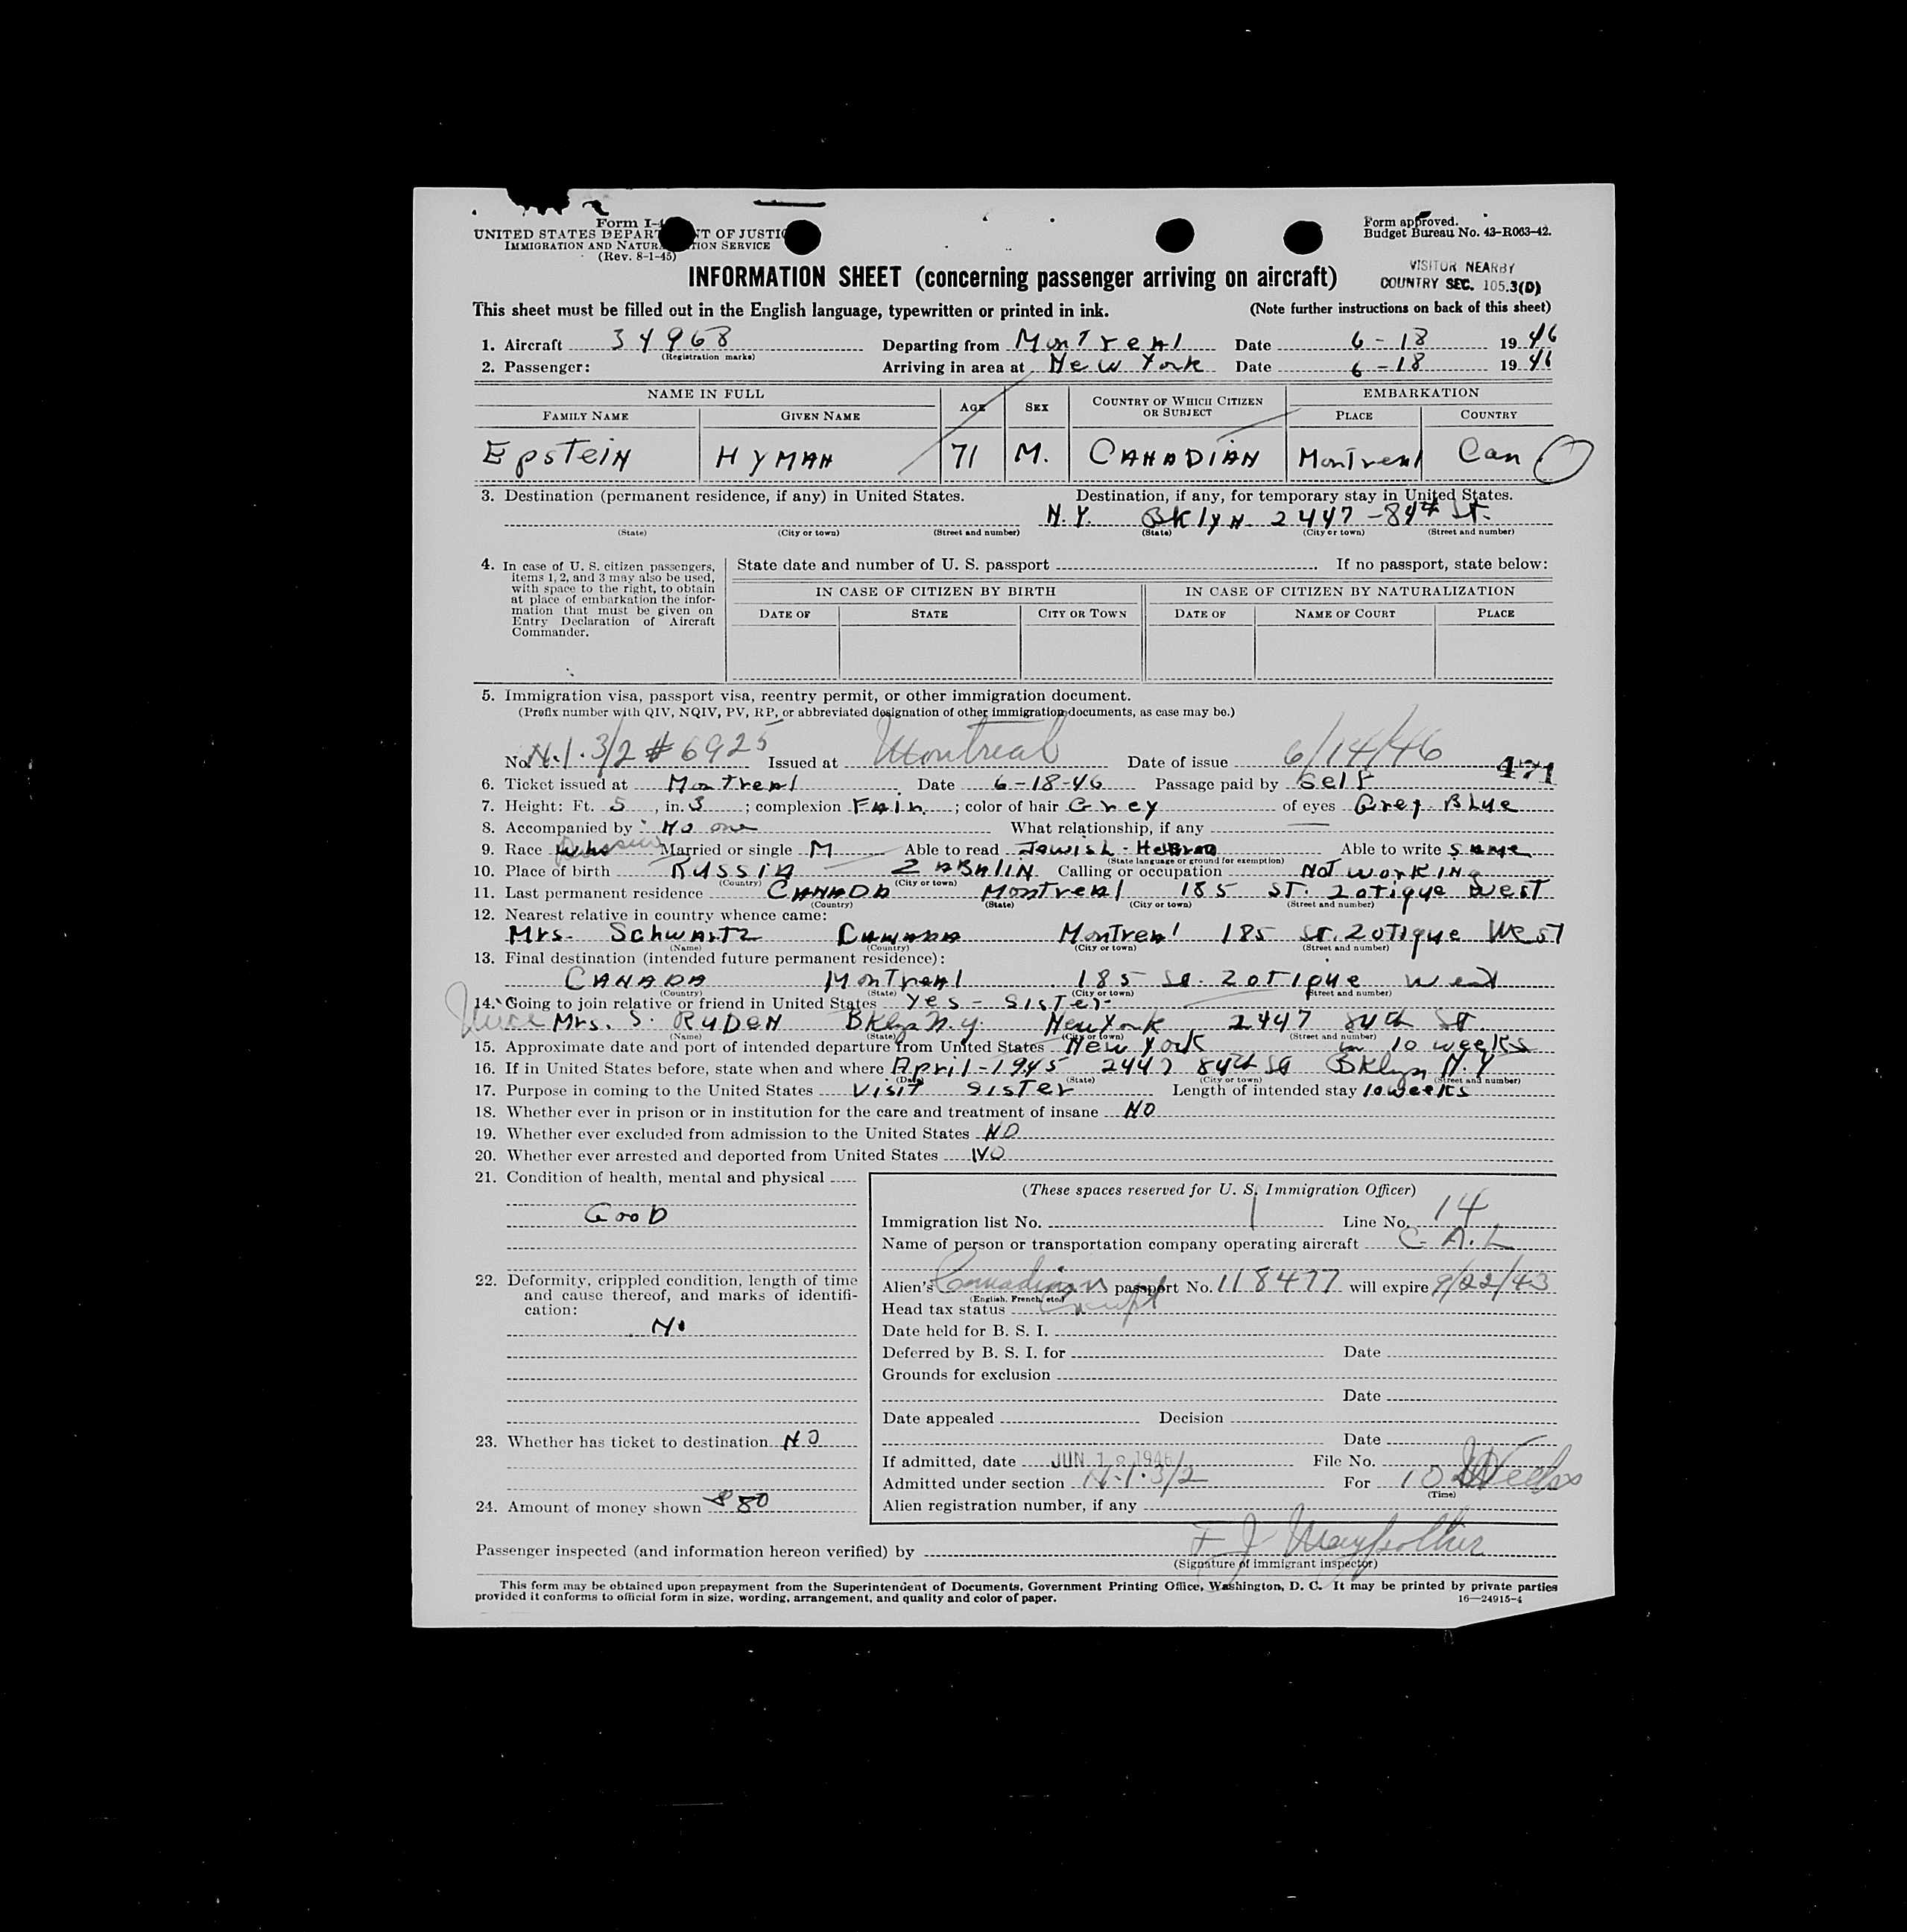 Form I-4
UNITED STATES DEPAR NT OF JUSTIC
IMMIGRATION AND NATURA TION SERVICE
(Rev. 8-1-45)
Form approved.
Budget Bureau No. 43-R063-42.
INFORMATION SHEET (concerning passenger arriving on aircraft)
VISITOR NEARBY
COUNTRY SEC. 105.3(D)
This sheet must be filled out in the English language, typewritten or printed in ink. (Note further instructions on back of this sheet)
1. Aircraft 34968 Departing from Montreal Date 6-18 1946
(Registration marks)
2. Passenger: Arriving in area at New York Date 6-18 1946
NAME IN FULL AGE SEX COUNTRY OF WHICH CITIZEN OR SUBJECT EMBARKATION
FAMILY NAME GIVEN NAME PLACE COUNTRY
Epstein HYMAN 71 M. CANADIAN Montreal Can
3. Destination (permanent residence, if any) in United States. Destination, if any, for temporary stay in United States.
N.Y. BKlyN 2447-84th St.
(State) (City or town) (Street and number) (State) (City or town) (Street and number)
4. In case of U. S. citizen passengers, items 1, 2, and 3 may also be used, with space to the right, to obtain at place of embarkation the information that must be given on Entry Declaration of Aircraft Commander.
State date and number of U. S. passport If no passport, state below:
IN CASE OF CITIZEN BY BIRTH IN CASE OF CITIZEN BY NATURALIZATION
DATE OF STATE CITY OR TOWN DATE OF NAME OF COURT PLACE
5. Immigration visa, passport visa, reentry permit, or other immigration document.
(Prefix number with QIV, NQIV, PV, RP, or abbreviated designation of other immigration documents, as case may be.)
No. N.I. 3/2 # 6925 Issued at Montreal Date of issue 6/14/46
471
6. Ticket issued at Montreal Date 6-18-46 Passage paid by Self
7. Height: Ft. 5, in. 3; complexion Fair; color of hair Grey of eyes Grey Blue
8. Accompanied by No one What relationship, if any
9. Race Russian Married or single M Able to read Jewish-Hebrew Able to write same
(State language or ground for exemption)
10. Place of birth RUSSIA ZABALIN Calling or occupation Not working
(Country) (City or town)
11. Last permanent residence CANADA Montreal 185 ST. Zotique West
(Country) (State) (City or town) (Street and number)
12. Nearest relative in country whence came:
Mrs. Schwartz Canada Montreal 185 St. Zotique West
(Name) (Country) (City or town) (Street and number)
13. Final destination (intended future permanent residence):
CANADA Montreal 185 St. Zotique West
(Country) (State) (City or town) (Street and number)
14. Going to join relative or friend in United States yes - sister
Niece Mrs. S. RUDEN BKlyn N.Y. New York 2447 84th St
(Name) (State) (City or town) (Street and number)
15. Approximate date and port of intended departure from United States New York in 10 weeks
16. If in United States before, state when and where April-1945 2447 84th St BKlyn N.Y
(Date) (State) (City or town) (Street and number)
17. Purpose in coming to the United States Visit Sister Length of intended stay 10 weeks
18. Whether ever in prison or in institution for the care and treatment of insane NO
19. Whether ever excluded from admission to the United States NO
20. Whether ever arrested and deported from United States NO
21. Condition of health, mental and physical
Good
22. Deformity, crippled condition, length of time and cause thereof, and marks of identification:
No
23. Whether has ticket to destination NO
24. Amount of money shown $80
(These spaces reserved for U. S. Immigration Officer)
Immigration list No. 1 Line No. 14
Name of person or transportation company operating aircraft C.A.L
Alien's Canadian passport No. 118477 will expire 9/22/43
(English, French, etc.)
Head tax status Exempt
Date held for B. S. I.
Deferred by B. S. I. for Date
Grounds for exclusion
Date
Date appealed Decision
Date
If admitted, date JUN 18 1946 File No.
Admitted under section N.I. 3/2 For 10 Weeks
(Time)
Alien registration number, if any
Passenger inspected (and information hereon verified) by F J
(Signature of immigrant inspector)
This form may be obtained upon prepayment from the Superintendent of Documents, Government Printing Office, Washington, D. C. It may be printed by private parties
provided it conforms to official form in size, wording, arrangement, and quality and color of paper. 16—24915-4